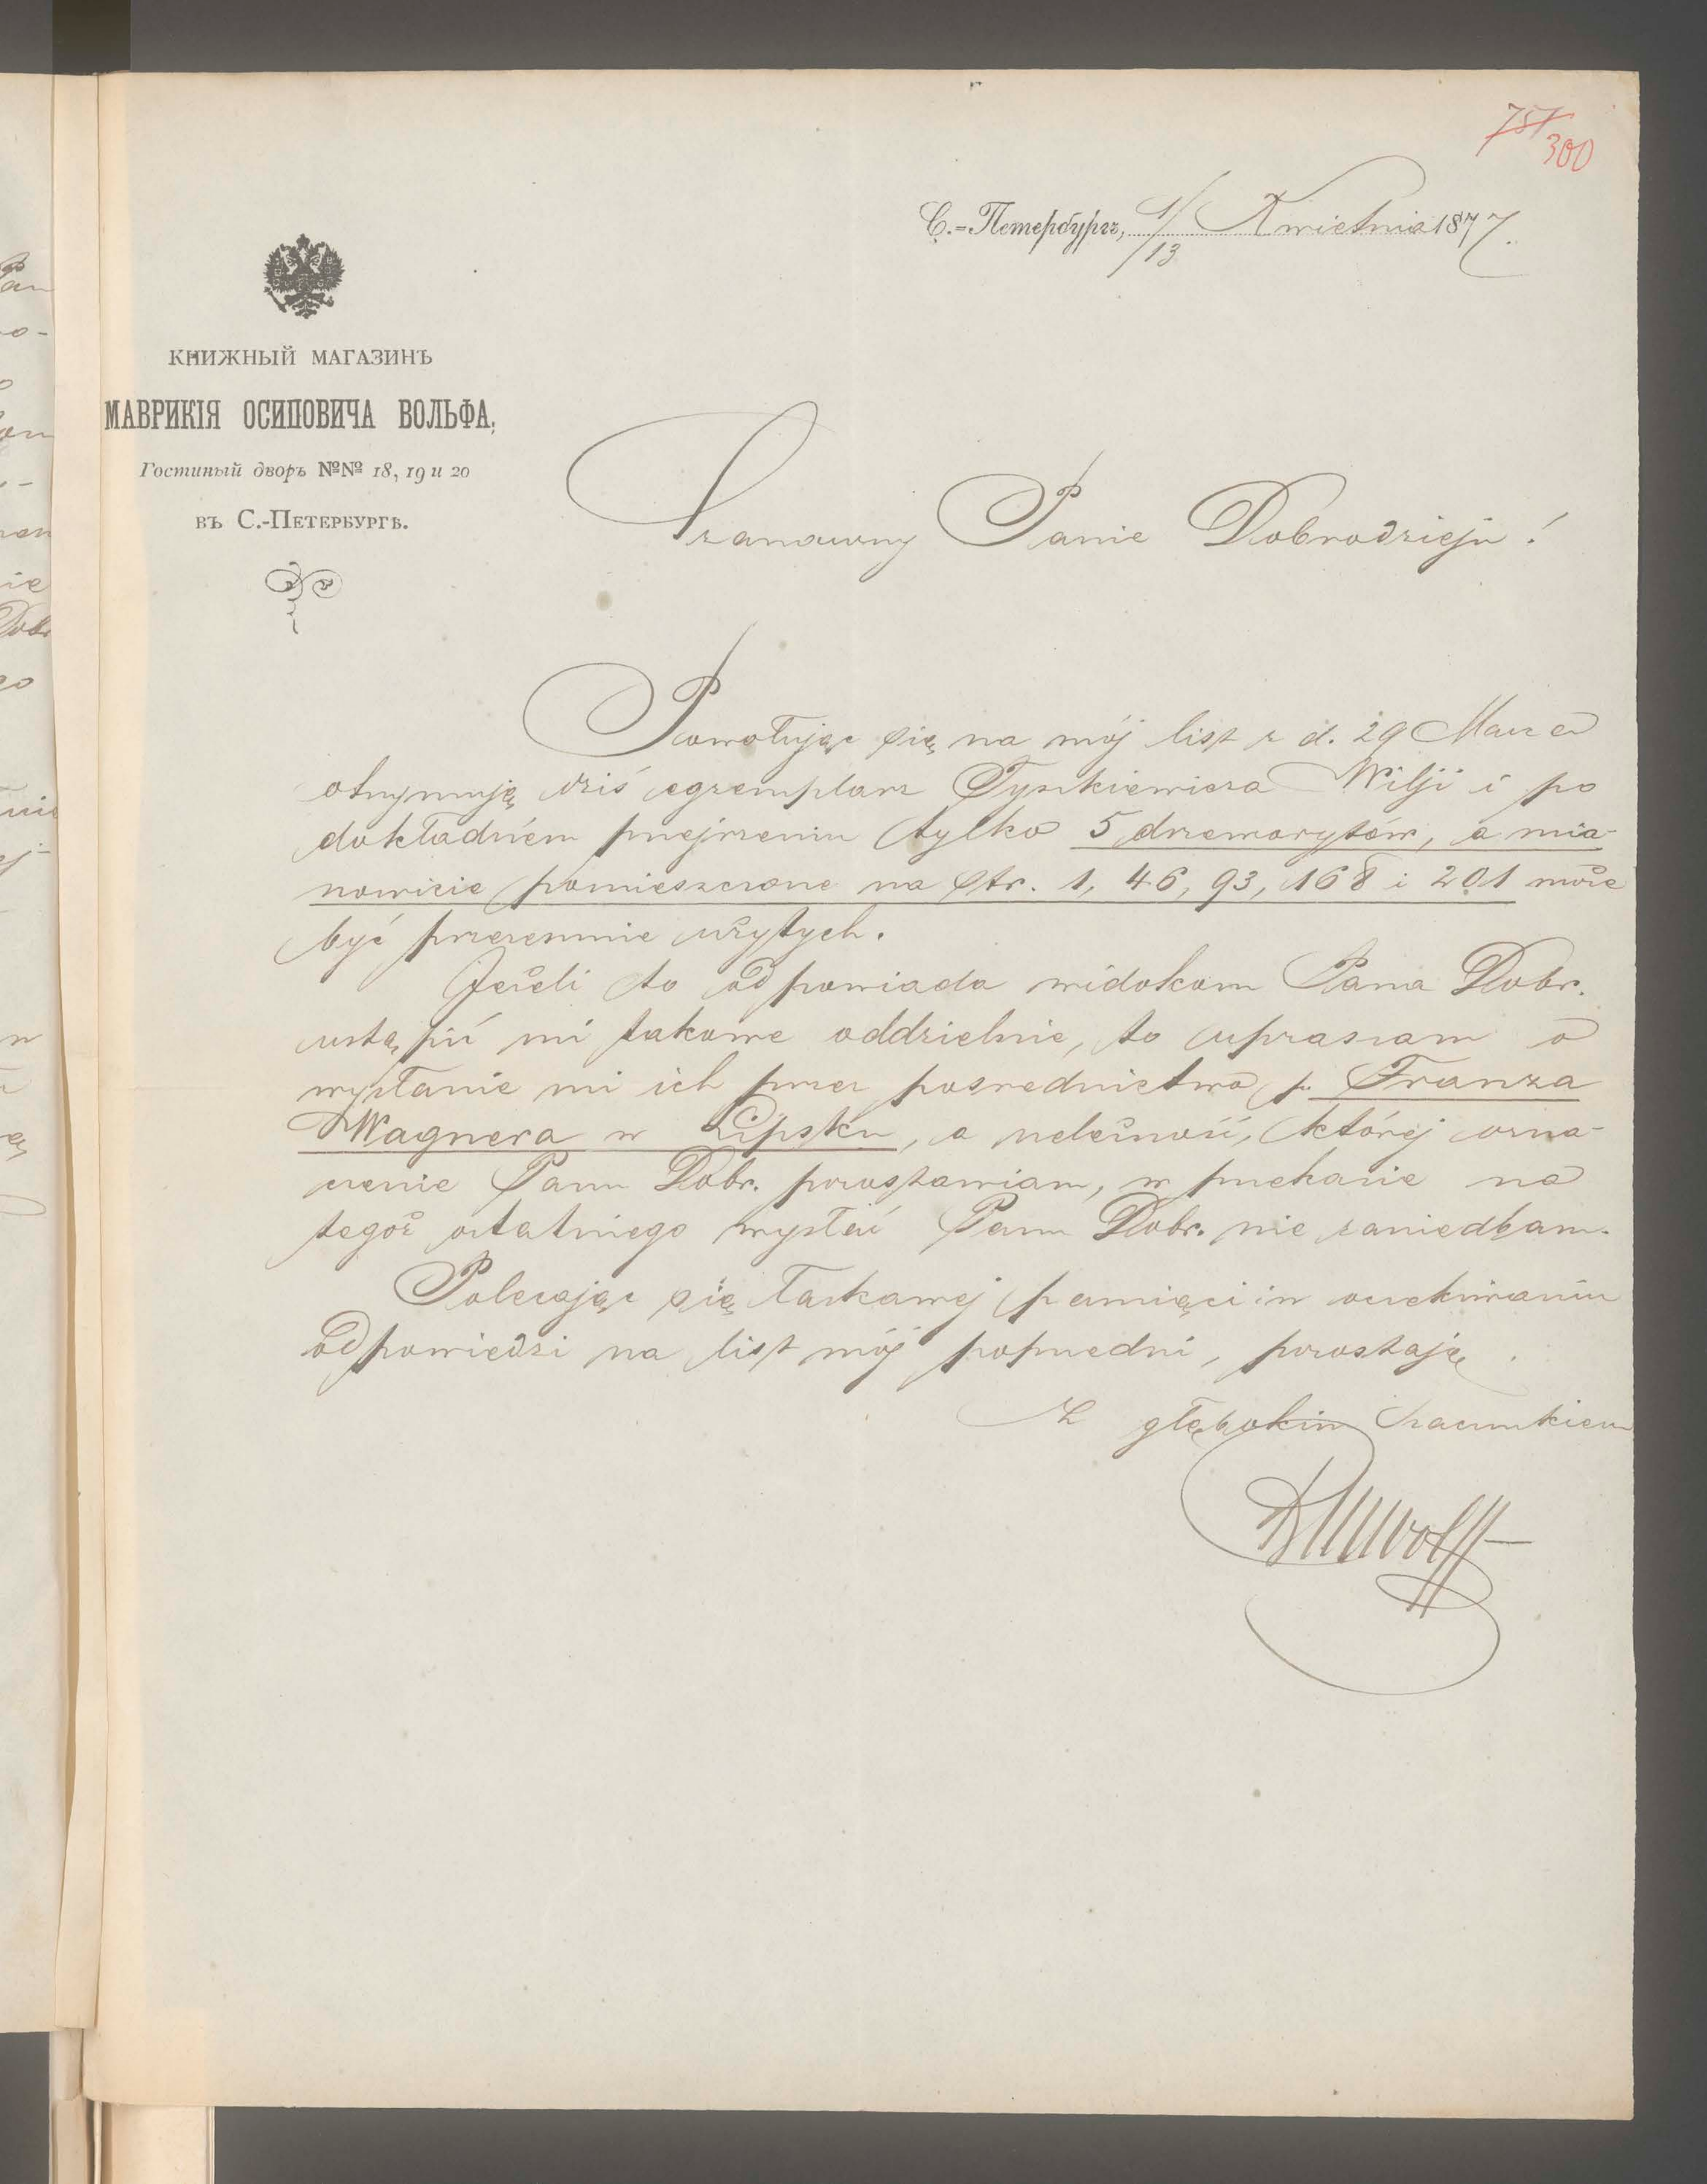 751
300
С.-Петербургъ, 1/13 Kwietnia 1877.
КНИЖНЫЙ МАГАЗИНЪ
МАВРИКІЯ ОСИПОВИЧА ВОЛЬФА,
Гостиный дворъ №№ 18, 19 и 20
въ С.-Петербургѣ.
Szanowny Panie Dobrodzieju!
Powołując się na mój list z d. 29 Marca
otrzymuję dziś egzemplarz Tyszkiewicza Wilji i po
dokładném przejrzeniu tylko 5 drzeworytów, a mia-
nowicie pomieszczone na str. 1, 46, 93, 168 i 201 może
być przezemnie użytych.
Jeżeli to odpowiada widokom Pana Dobr.
ustąpić mi takowe oddzielnie, to upraszam o
wysłanie mi ich przez posrednictwo p. Franza
Wagnera w Lipsku, a należność, której ozna-
czenie Panu Dobr. pozostawiam, w przekazie na
tegoż ostatniego wysłać Panu Dobr. nie zaniedbam.
Polecając się łaskawej pamięci i w oczekiwaniu
odpowiedzi na list mój poprzedni, pozostaję
Z głębokim szacunkiem
BMWolff